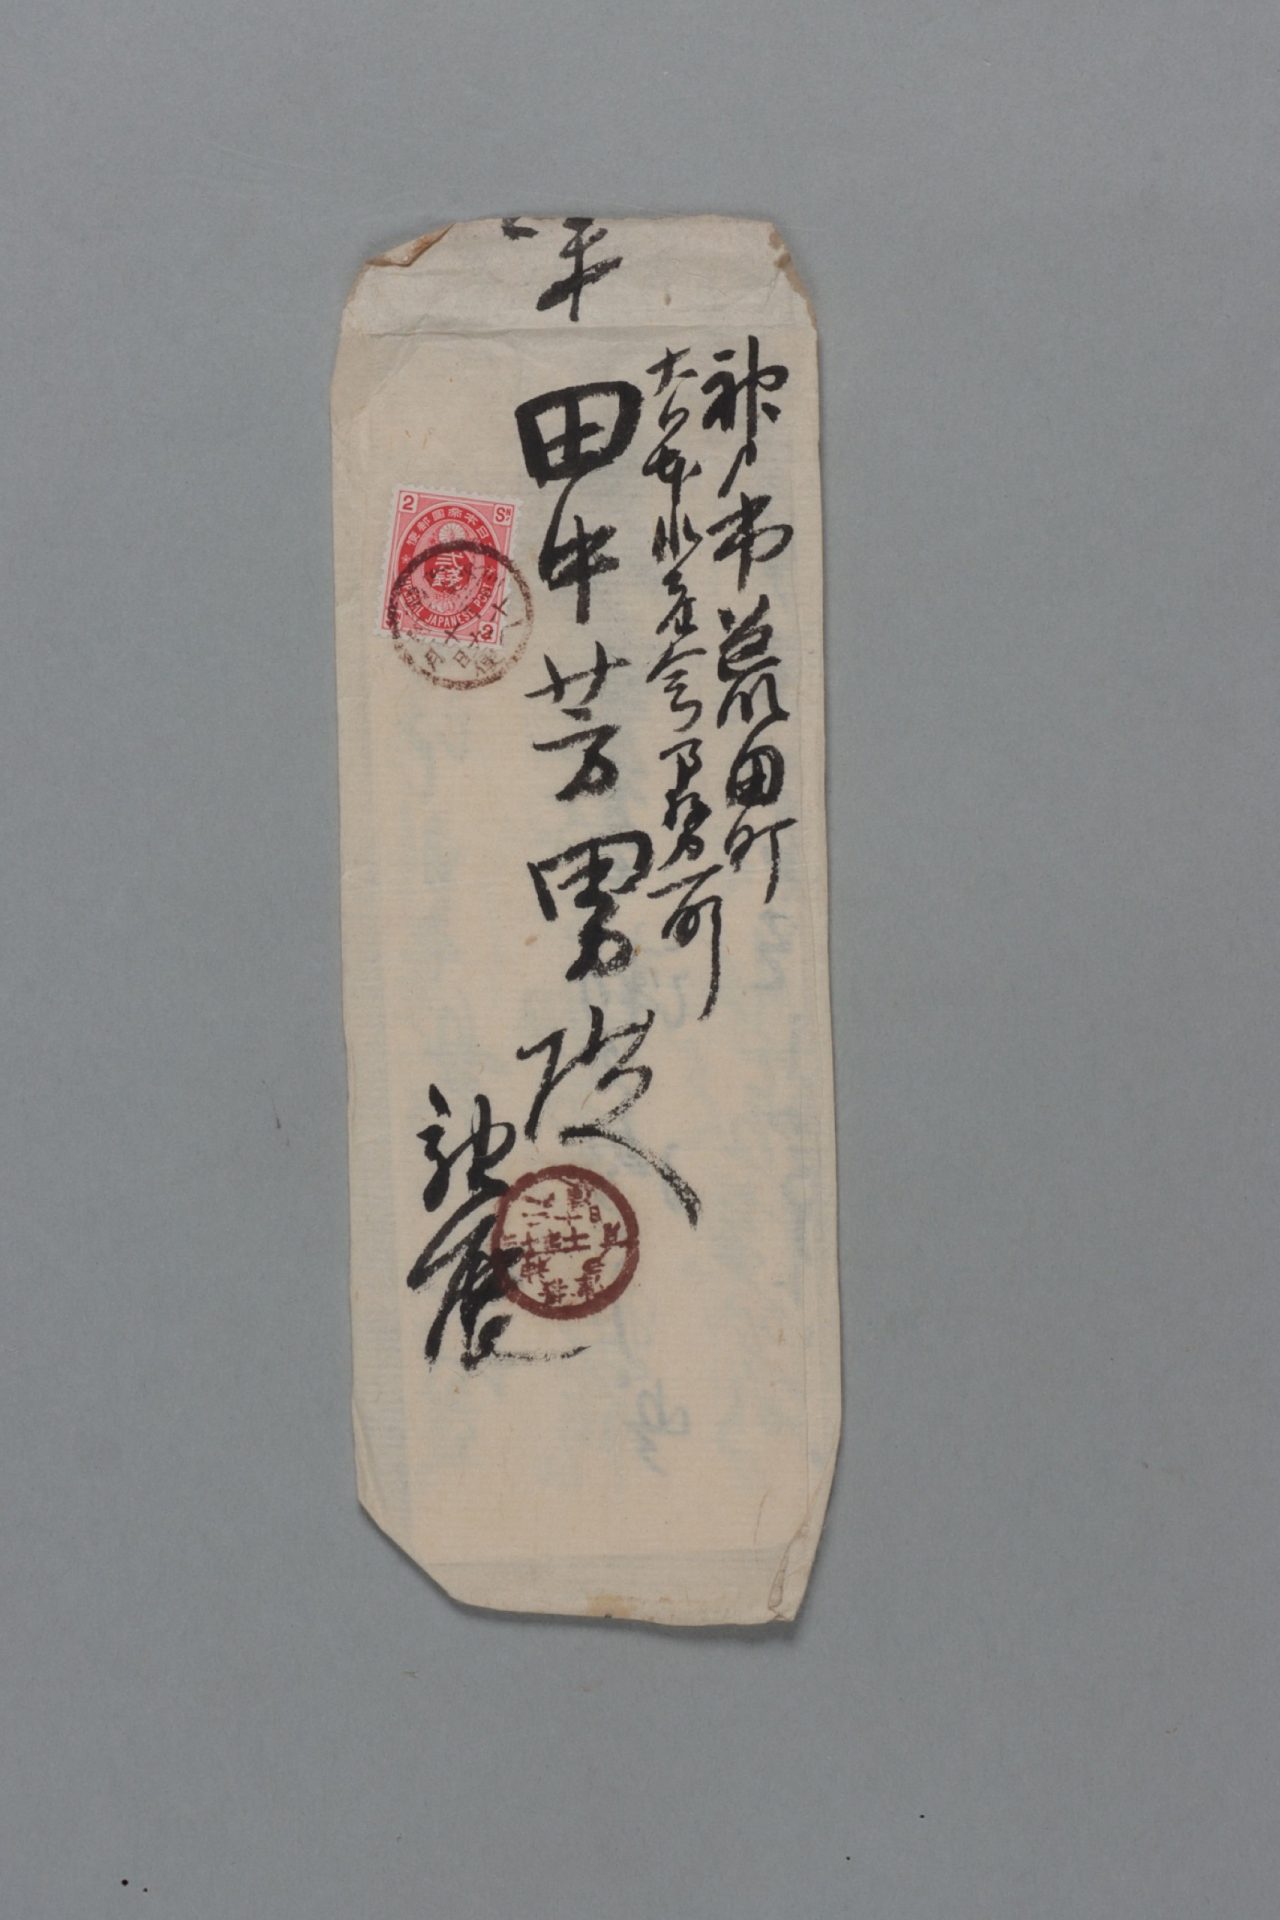 神戸市荒田町
大日本水産会事務所
田中芳男殿
親展
平
2 SN
大日本帝国郵便
貳銭
IMPERIAL JAPANESE POST
2